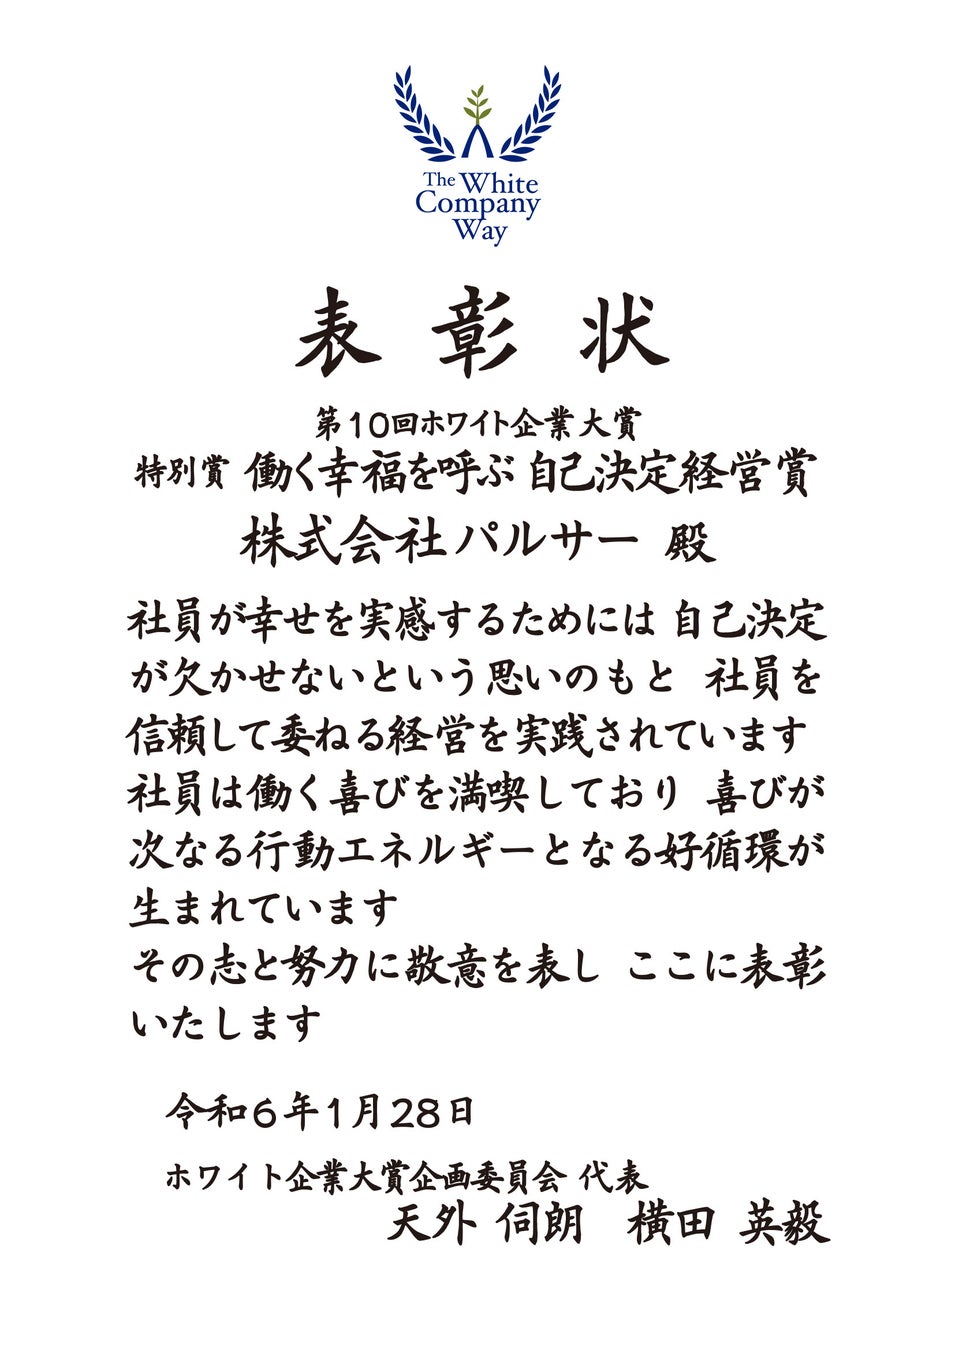 The White
Company
Way
表彰状
第10回ホワイト企業大賞
特別賞 働く幸福を呼ぶ 自己決定経営賞
株式会社パルサー 殿
社員が幸せを実感するためには 自己決定
が欠かせないという思いのもと 社員を
信頼して委ねる経営を実践されています
社員は働く喜びを満喫しており 喜びが
次なる行動エネルギーとなる好循環が
生まれています
その志と努力に敬意を表し ここに表彰
いたします
令和6年1月28日
ホワイト企業大賞企画委員会 代表
天外 伺朗 横田 英毅